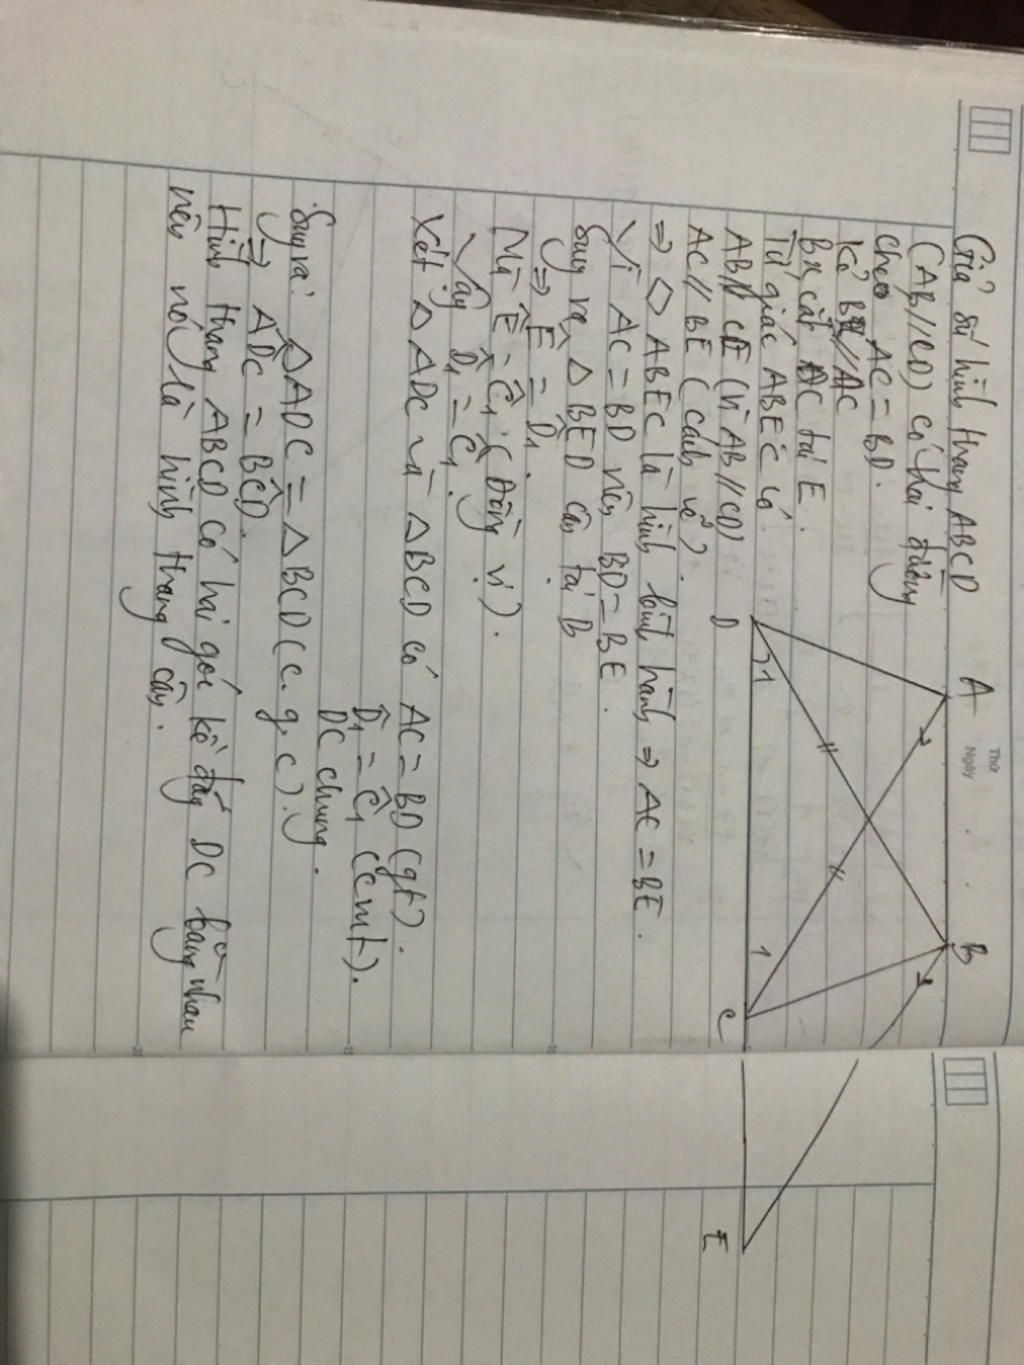 Thứ
Ngày
Giả sử hình thang ABCD
(AB//CD) có hai đường
chéo AC = BD.
Kẻ Bx//AC
Bx cắt DC tại E.
Tứ giác ABEC có:
AB//CE (vì AB//CD)
AC//BE (cách vẽ).
⇒ ◇ ABEC là hình bình hành ⇒ AC = BE.
Vì AC = BD nên BD = BE.
Suy ra △ BED cân tại B
⇒ Ê = D̂₁.
Mà Ê = Ĉ₁ (đồng vị).
Vậy D̂₁ = Ĉ₁.
Xét △ ADC và △ BCD có AC = BD (gt).
D̂₁ = Ĉ₁ (cmt).
DC chung.
Suy ra: △ADC = △BCD (c.g.c).
⇒ AD̂C = BĈD.
Hình thang ABCD có hai góc kề đáy DC bằng nhau
nên nó là hình thang cân.
A
B
D
1
1
C
E